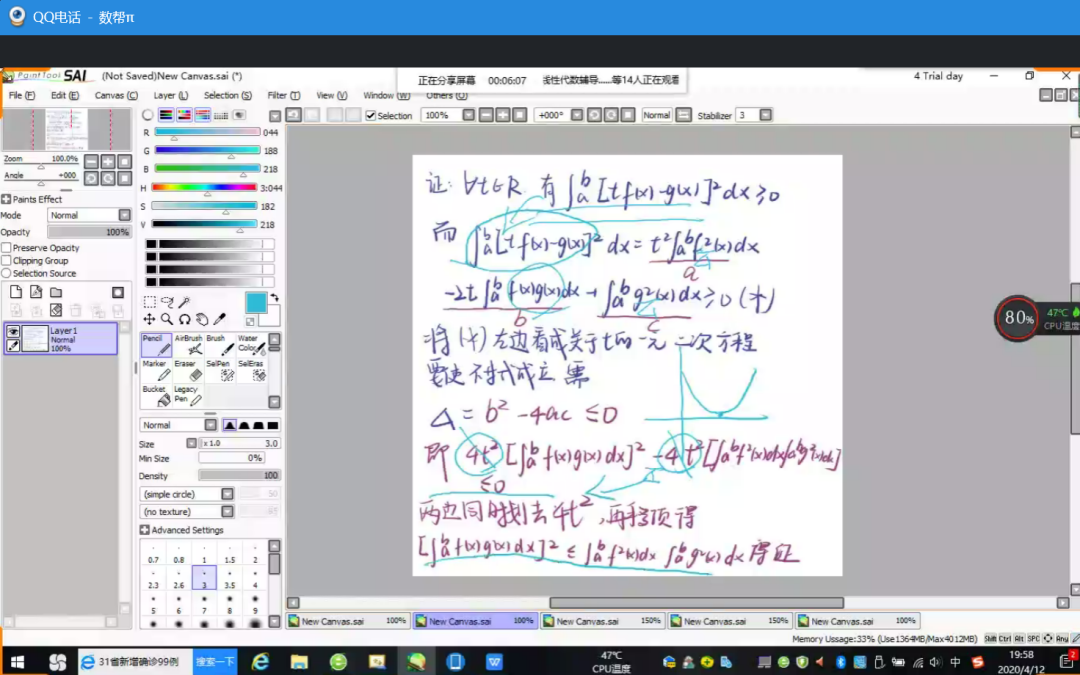 QQ电话 - 数帮π
PaintTool SAI (Not Saved)New Canvas.sai (*)
正在分享屏幕 00:06:07 线性代数辅导......等14人正在观看
4 Trial day
File (F) Edit (E) Canvas (C) Layer (L) Selection (S) Filter (T) View (V) Window (W) Others (O)
Selection 100% +000° Normal Stabilizer 3
Zoom 100.0%
Angle +000
Paints Effect
Mode Normal
Opacity 100%
Preserve Opacity
Clipping Group
Selection Source
Layer1
Normal
100%
R 044
G 188
B 218
H 3:044
S 182
V 218
Pencil AirBrush Brush Water Color
Marker Eraser SelPen SelEras
Bucket Legacy Pen
Normal
Size x 1.0 3.0
Min Size 0%
Density 100
(simple circle) 50
(no texture)
Advanced Settings
0.7 0.8 1 1.5 2
2.3 2.6 3 3.5 4
5 6 7 8 9
证: ∀t∈R 有∫ₐᵇ[tf(x)-g(x)]²dx≥0
而 ∫ₐᵇ[tf(x)-g(x)]²dx=t²∫ₐᵇf²(x)dx
a
-2t∫ₐᵇf(x)g(x)dx+∫ₐᵇg²(x)dx≥0(*)
b c
将(*)左边看成关于t的一元二次方程
要使不等式成立 需
Δ=b²-4ac≤0
即 4t²[∫ₐᵇf(x)g(x)dx]²-4t²[∫ₐᵇf²(x)dx∫ₐᵇg²(x)dx]
≤0
两边同时划去4t²,再移项得
[∫ₐᵇf(x)g(x)dx]²≤∫ₐᵇf²(x)dx∫ₐᵇg²(x)dx 得证
80% 47℃
CPU温度
New Canvas.sai 100% New Canvas.sai 100% New Canvas.sai 150% New Canvas.sai 150% New Canvas.sai 100%
Memory Usage:33% (Use1364MB/Max4012MB) Shift Ctrl Alt SPC Any
31省新增确诊99例 搜索一下
47℃
CPU温度
中
19:58
2020/4/12
2